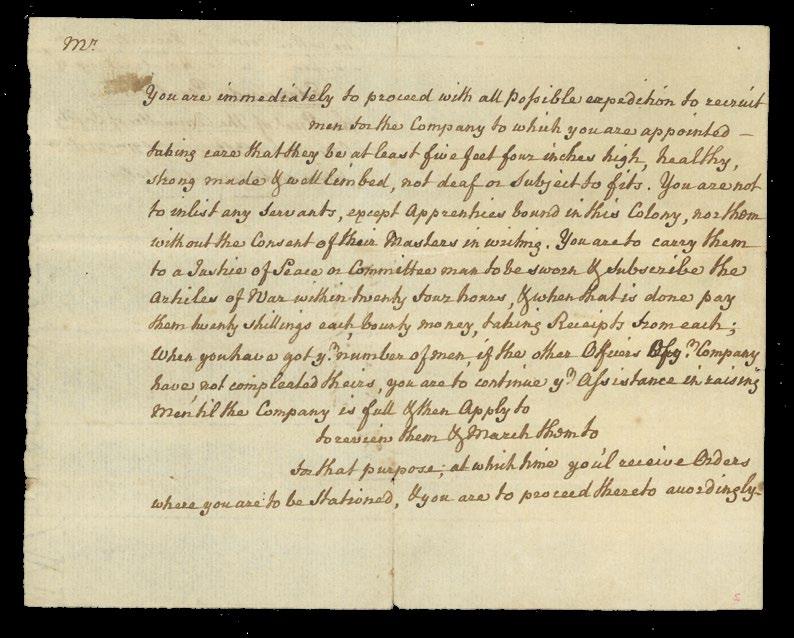 Mr.
You are immediately to proceed with all possible expedition to recruit
men for the Company to which you are appointed –
taking care that they be at least five feet four inches high, healthy,
strong made & well limbed, not deaf or subject to fits. You are not
to inlist any Servants, except Apprentices bound in this Colony, nor them
without the Consent of their Masters in writing. You are to carry them
to a Justice of Peace or Committee man to be sworn & subscribe the
Articles of War within twenty four hours, & when that is done pay
them twenty shillings each, bounty money, taking Receipts from each;
When you have got yr. number of men, if the other Officers of yr. Company
have not compleated theirs, you are to continue yr. Assistance in raising
Men 'til the Company is full & then Apply to
to review them & March them to
for that purpose; at which time you'l receive Orders
where you are to be Stationed, & you are to proceed thereto accordingly –